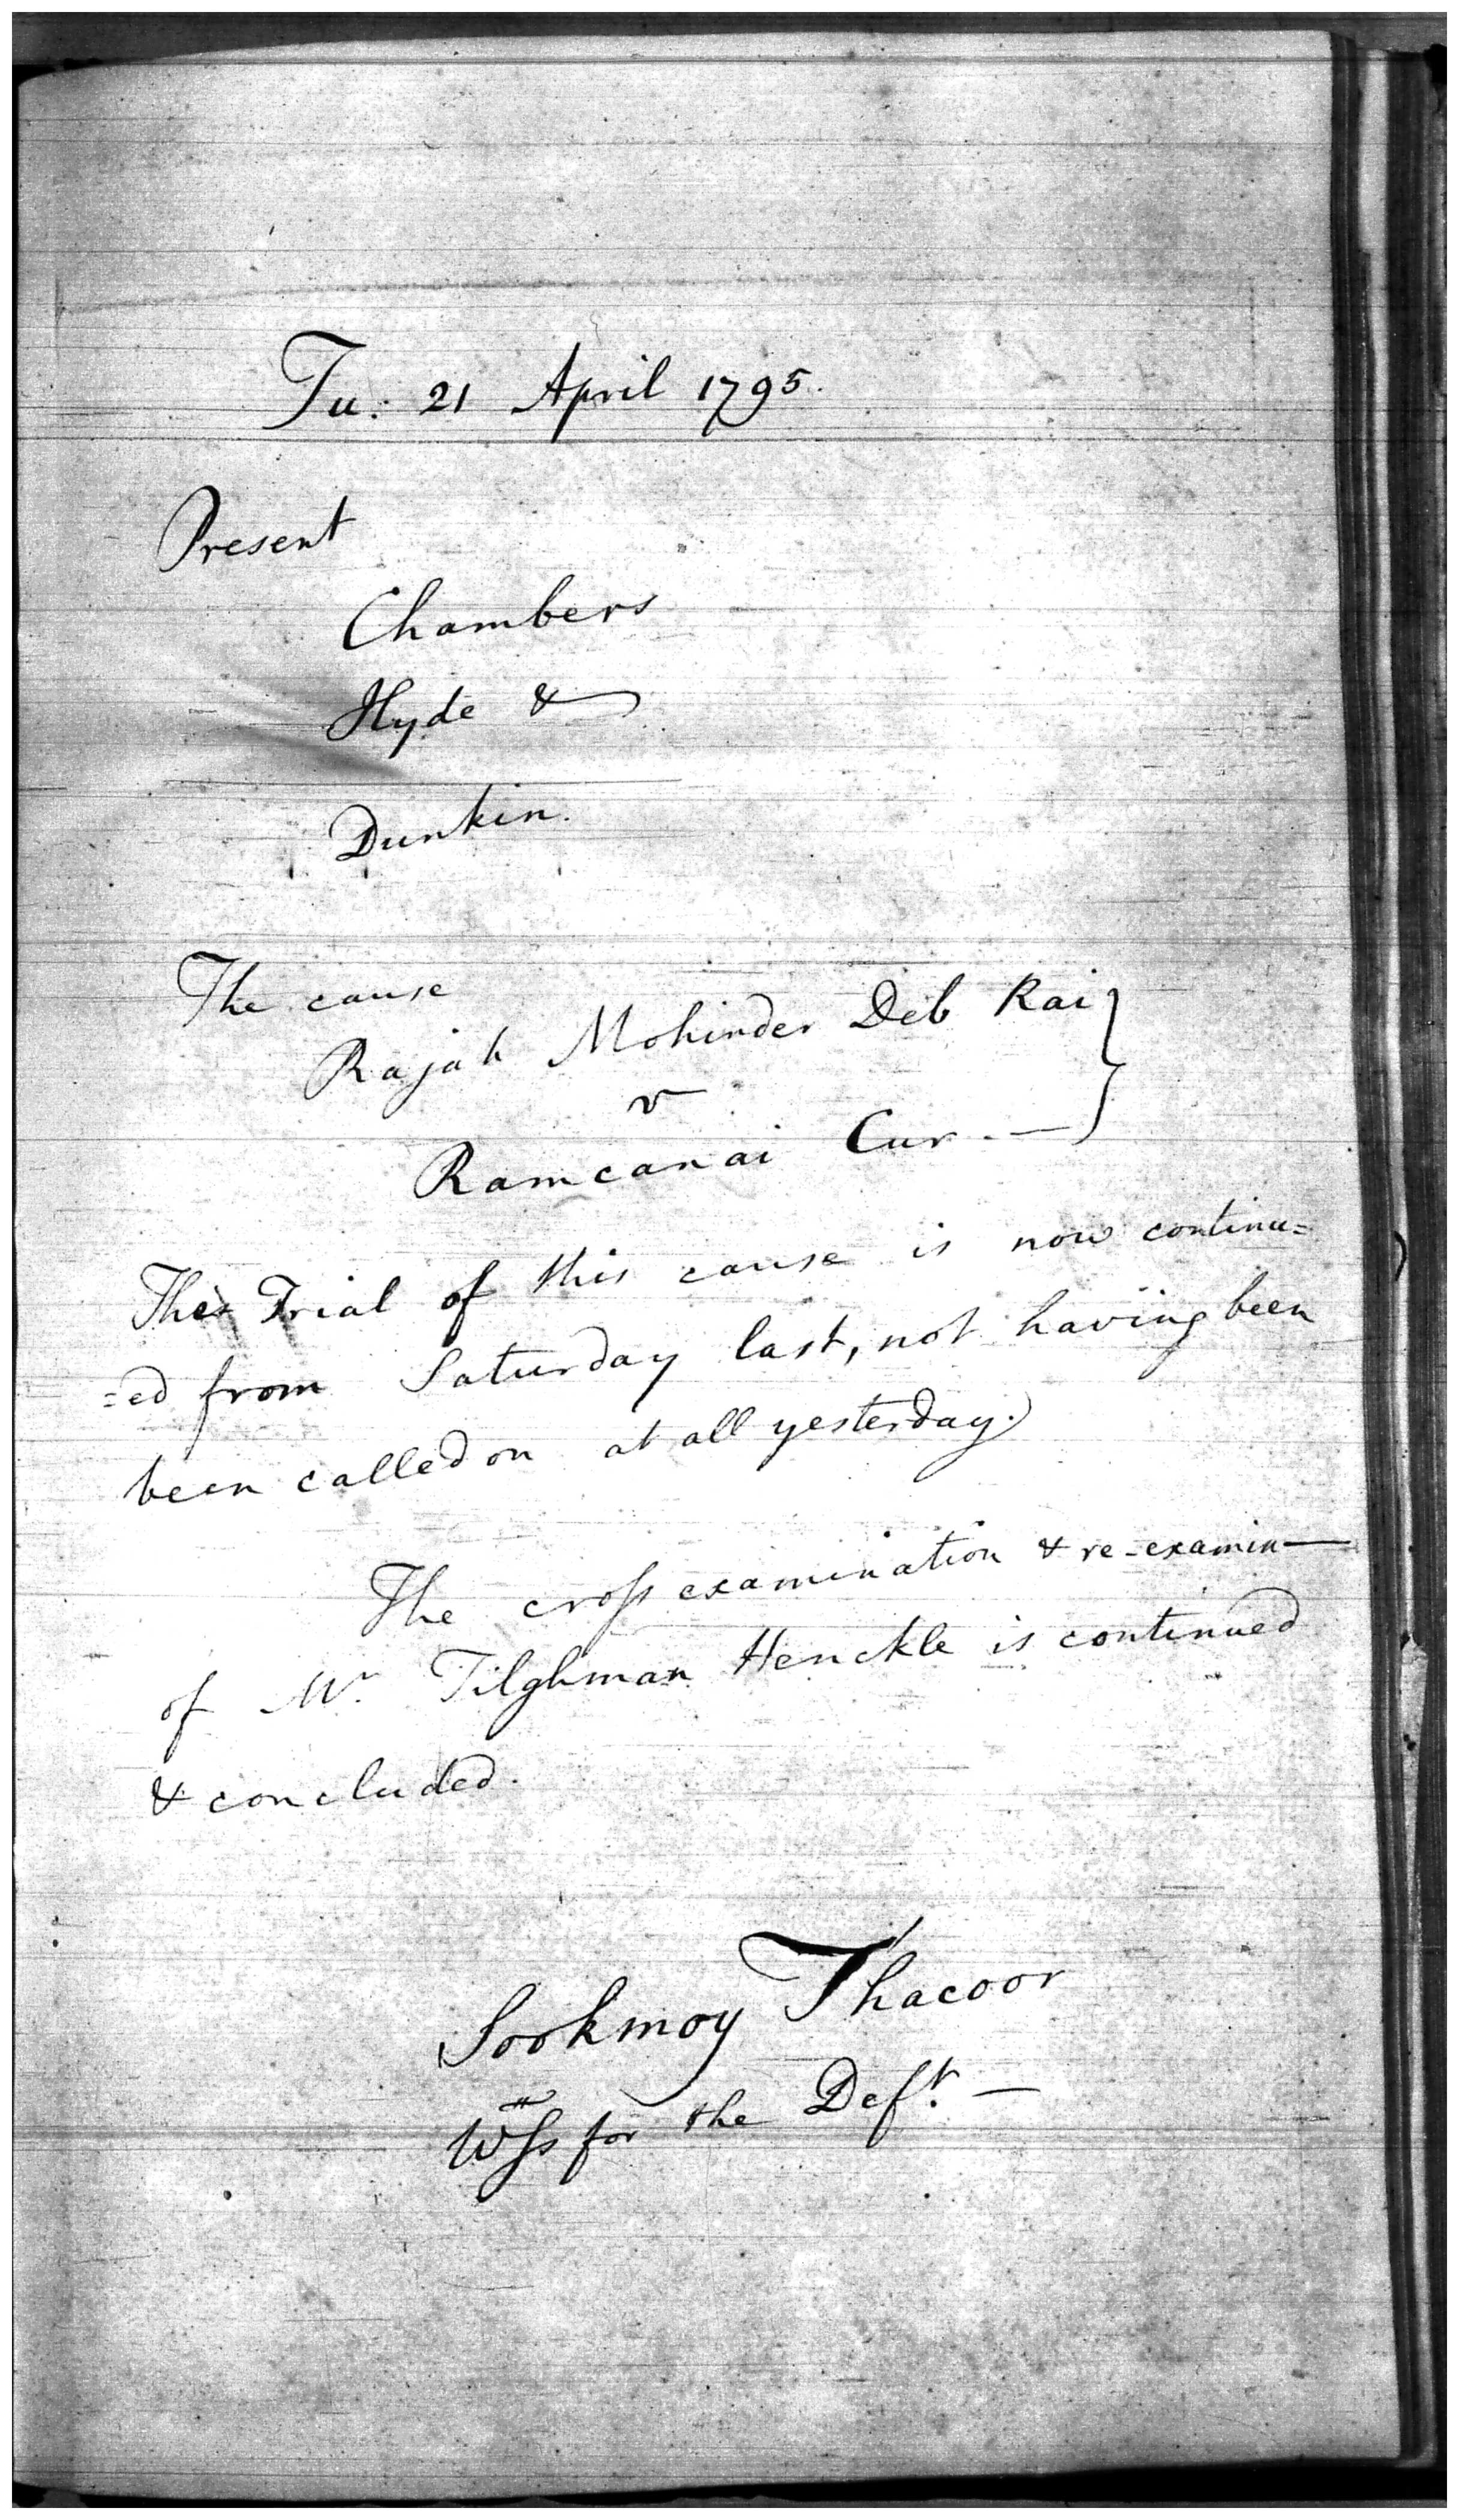 Tu: 21 April 1795.
Present
Chambers
Hyde &
Dunkin.
The cause
Rajah Mohinder Deb Rai }
v
Ramcanai Cur. —
The Trial of this cause is now continu=
=ed from Saturday last, not having been
been called on at all yesterday.
The cross examination & re-examin—
of Mr. Tilghman Henckle is continued
& concluded.
Sookmoy Thacoor
Wss for the Deft. —